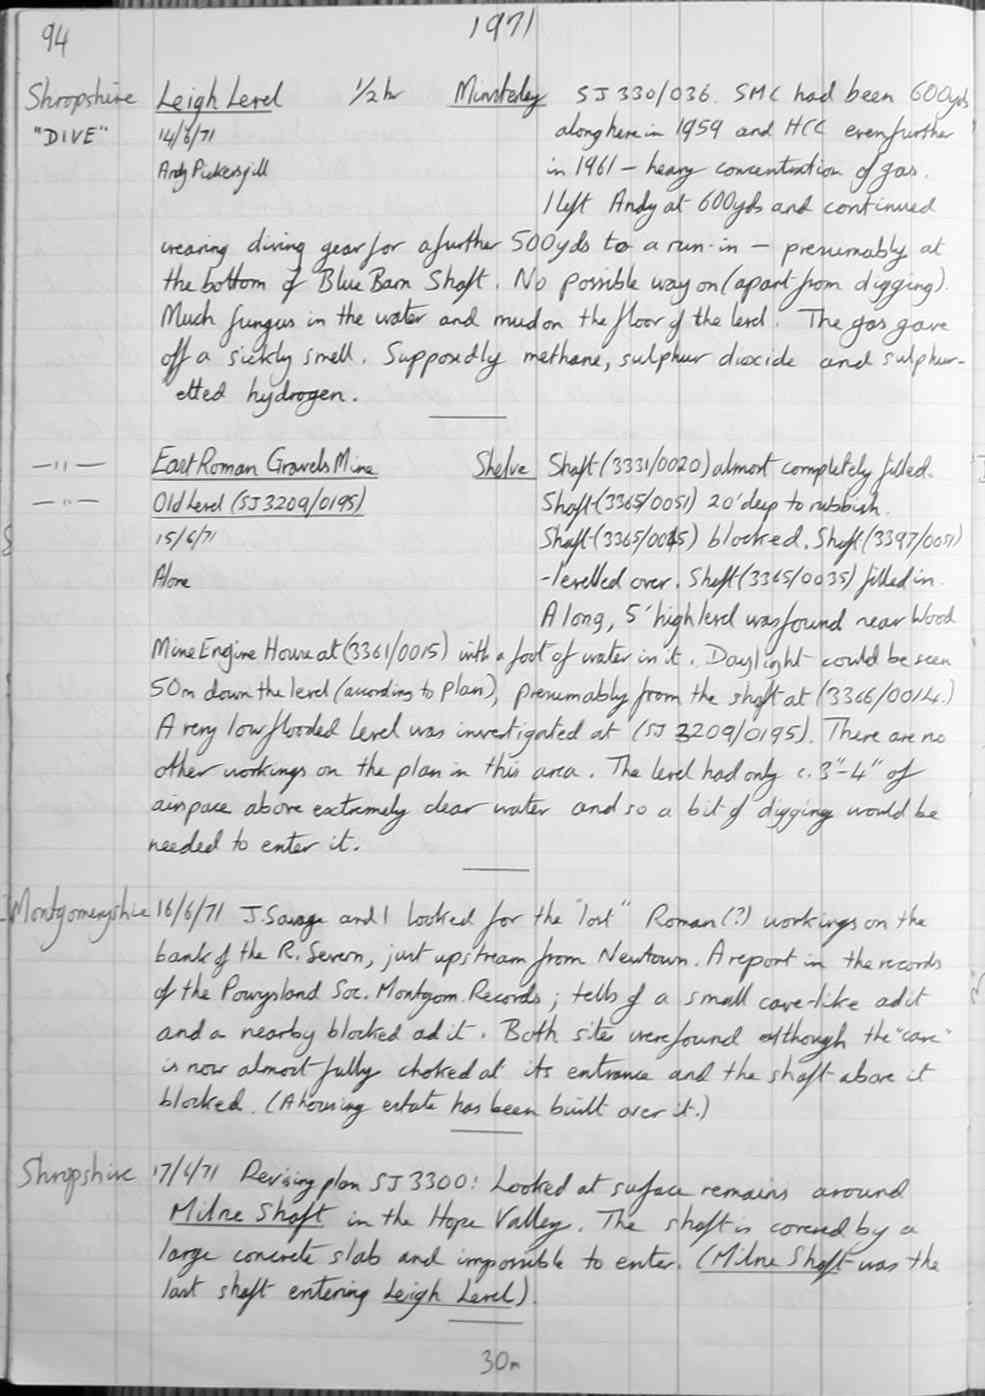 94
1971
Shropshire Leigh Level 1/2 hr Minsterley SJ 330/036. SMC had been 600yds
"DIVE" 14/6/71 along here in 1959 and HCC even further
Andy Pickersgill in 1961 – heavy concentration of gas.
I left Andy at 600yds and continued
wearing diving gear for a further 500yds to a run-in – presumably at
the bottom of Blue Barn Shaft. No possible way on (apart from digging).
Much fungus in the water and mud on the floor of the level. The gas gave
off a sickly smell. Supposedly methane, sulphur dioxide and sulphur-
etted hydrogen.
—"— East Roman Gravels Mine Shelve Shaft (3331/0020) almost completely filled.
—"— Old Level (SJ 3209/0195) Shaft (3365/0051) 20' deep to rubbish.
15/6/71 Shaft (3365/0045) blocked. Shaft (3397/0051)
Alone - levelled over. Shaft (3365/0035) filled in.
A long, 5' high level was found near Wood
Mine Engine House at (3361/0015) with a foot of water in it. Daylight could be seen
50m down the level (according to plan), presumably from the shaft at (3366/0014.)
A very low flooded level was investigated at (SJ 3209/0195). There are no
other workings on the plan in this area. The level had only c. 3"-4" of
airspace above extremely clear water and so a bit of digging would be
needed to enter it.
Montgomeryshire 16/6/71 J. Savage and I looked for the "lost" Roman (?) workings on the
bank of the R. Severn, just upstream from Newtown. A report in the records
of the Powysland Soc. Montgom. Records; tells of a small cave-like adit
and a nearby blocked adit. Both sites were found although the "cave"
is now almost fully choked at its entrance and the shaft above it
blocked. (A housing estate has been built over it.)
Shropshire 17/6/71 Revising plan SJ 3300: Looked at surface remains around
Milne Shaft in the Hope Valley. The shaft is covered by a
large concrete slab and impossible to enter. (Milne Shaft was the
last shaft entering Leigh Level).
30m